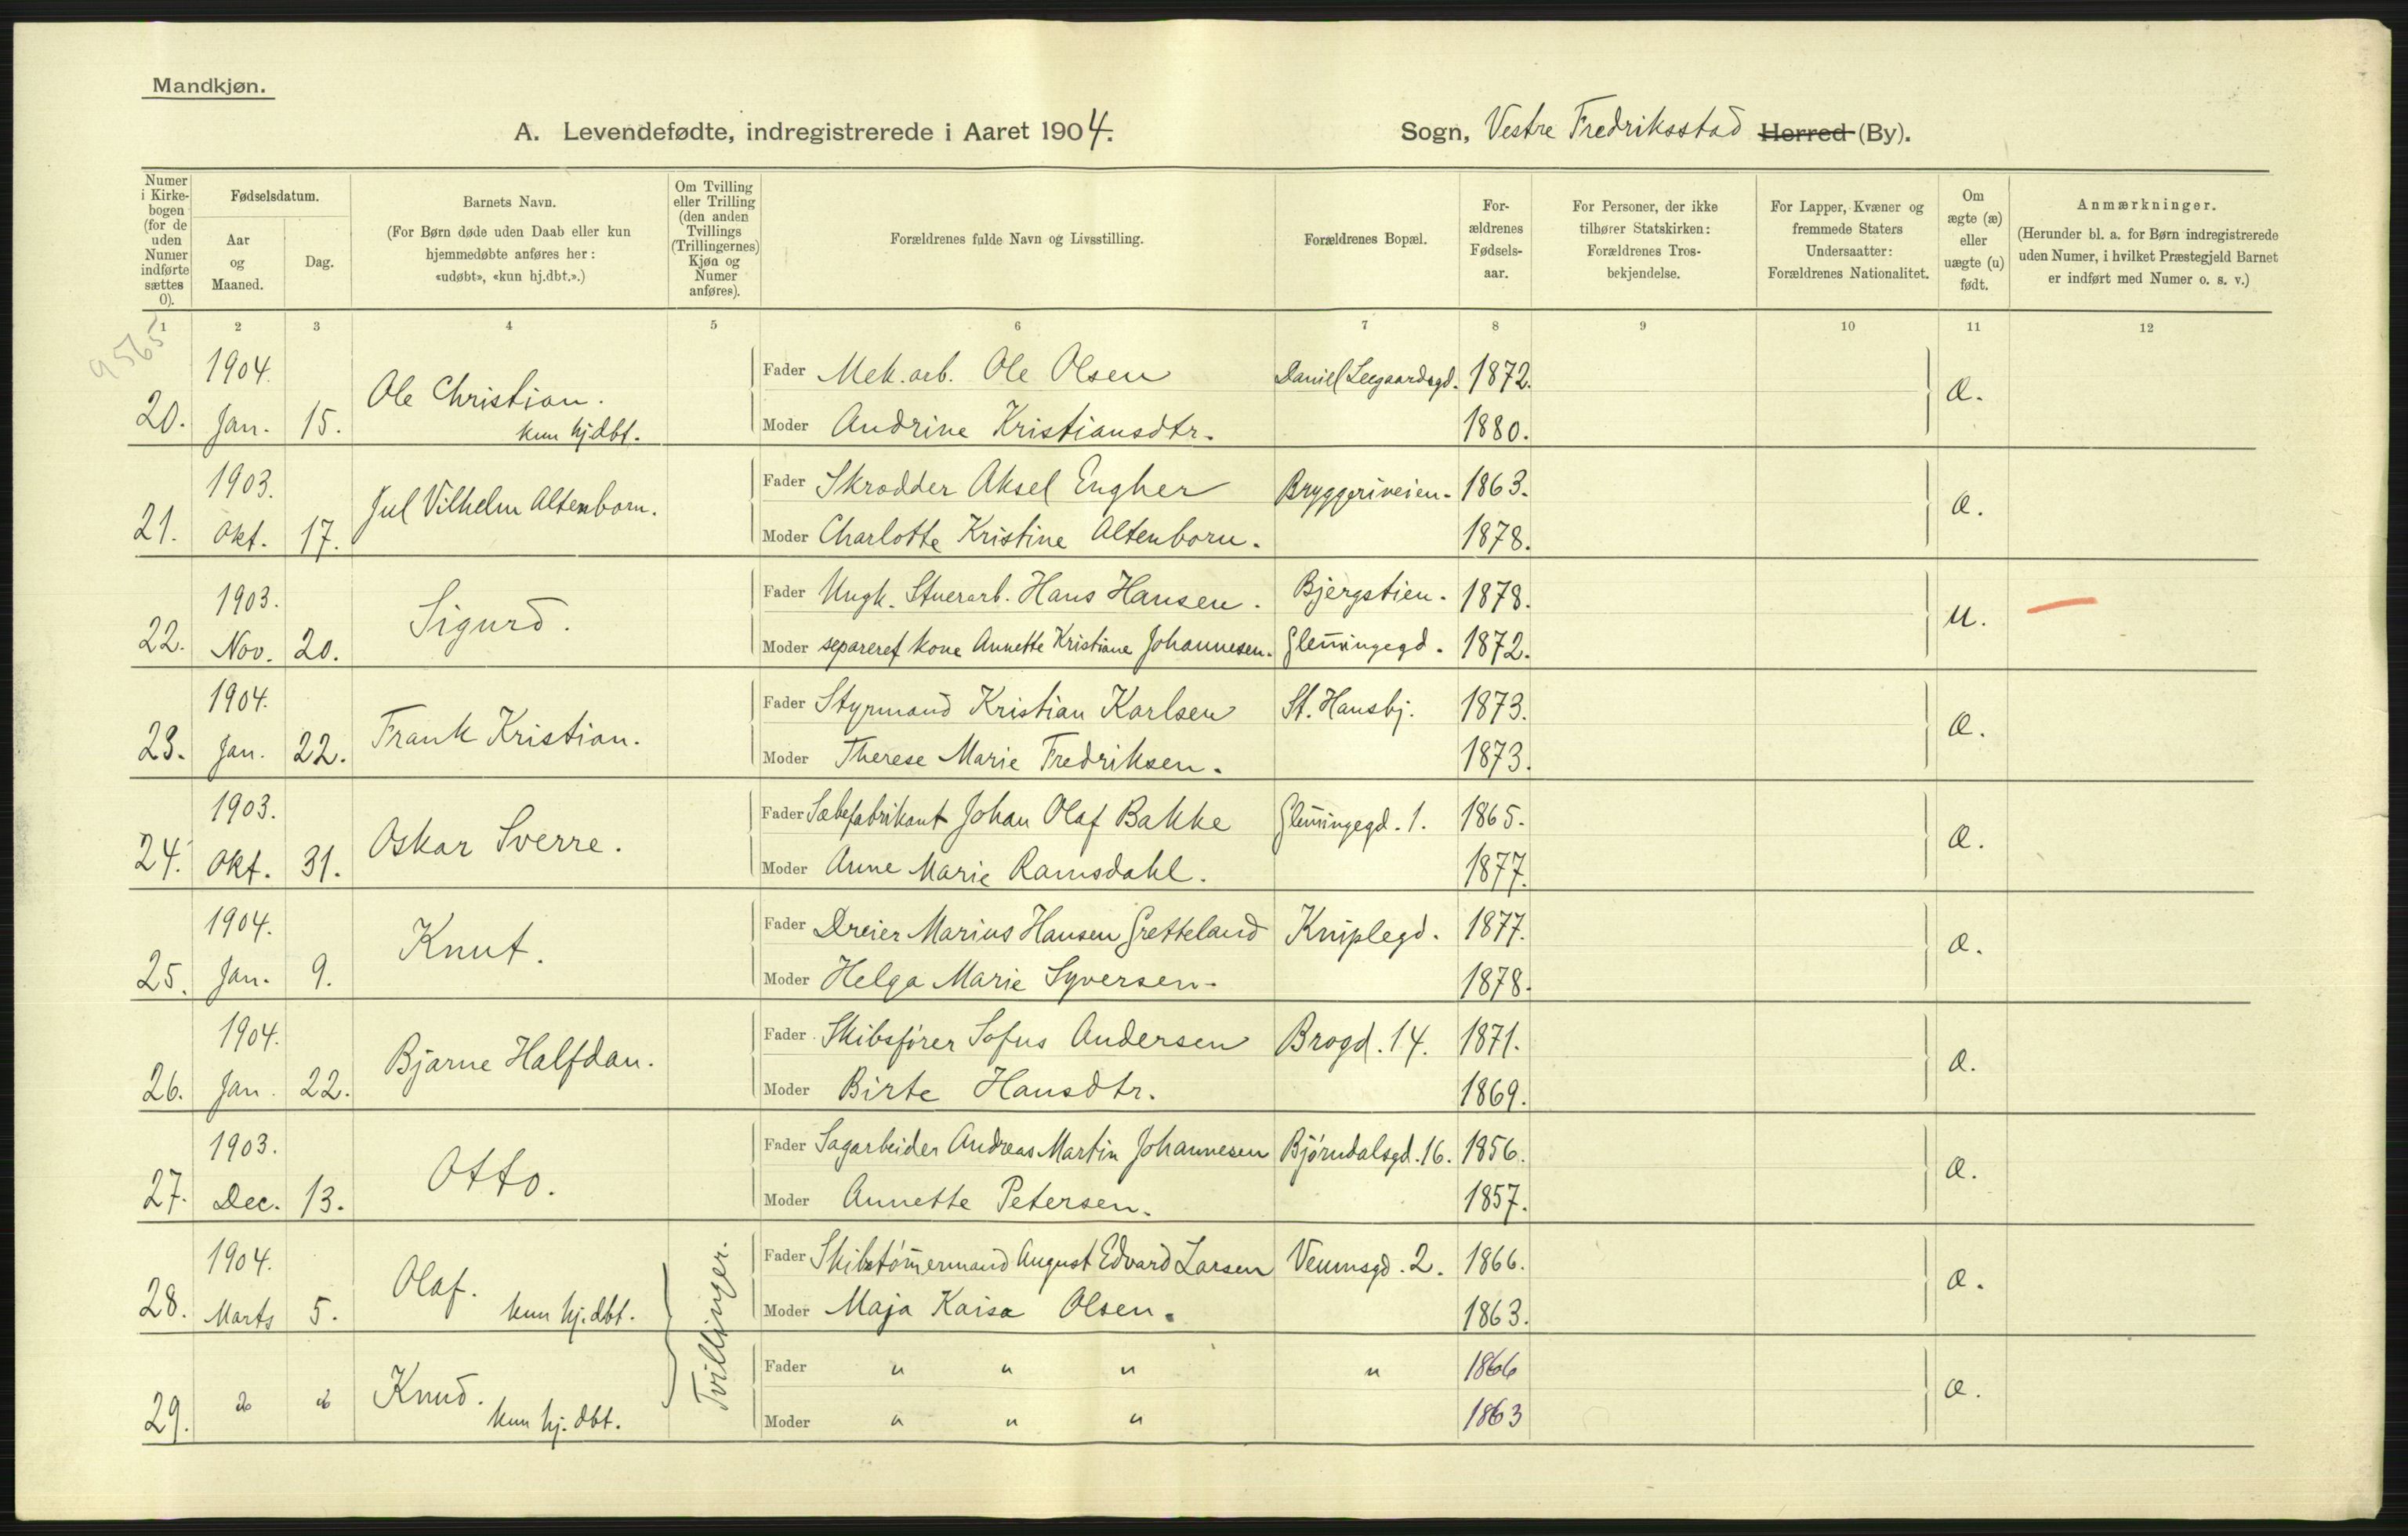 Mandkjøn.
A. Levendefødte, indregistrerede i Aaret 1904.
Sogn, Vestre Fredriksstad Herred (By).
Numer i Kirkebogen (for de uden Numer indførte sættes 0).
Fødselsdatum.
Aar og Maaned.
Dag.
Barnets Navn.
(For Børn døde uden Daab eller kun hjemmedøbte anføres her: «udøbt», «kun hj.dbt.».)
Om Tvilling eller Trilling (den anden Tvillings (Trillingernes) Kjøn og Numer anføres).
Forældrenes fulde Navn og Livsstilling.
Forældrenes Bopæl.
Forældrenes Fødselsaar.
For Personer, der ikke tilhører Statskirken: Forældrenes Trosbekjendelse.
For Lapper, Kvæner og fremmede Staters Undersaatter: Forældrenes Nationalitet.
Om ægte (æ) eller uægte (u) født.
Anmærkninger.
(Herunder bl. a. for Børn indregistrerede uden Numer, i hvilket Præstegjeld Barnet er indført med Numer o. s. v.)
1 2 3 4 5 6 7 8 9 10 11 12
9565
1904.
Fader Mek. arb. Ole Olsen Daniel Leegaardsgd. 1872.
20. Jan. 15. Ole Christian. kun hj.dbt. æ.
Moder Andrine Kristiansdtr. 1880.
1903.
Fader Skrædder Aksel Engher Bryggeriveien. 1863.
21. Okt. 17. Jul Vilhelm Altenborn. æ.
Moder Charlotte Kristine Altenborn. 1878.
1903.
Fader Ungk. Stuerarb. Hans Hansen. Bjergstien. 1878.
22. Nov. 20. Sigurd. u.
Moder separeret kone Annette Kristiane Johannesen. Glem̅ingegd. 1872.
1904.
Fader Styrmand Kristian Karlsen St. Hansbj. 1873.
23. Jan. 22. Frank Kristian. æ.
Moder Therese Marie Fredriksen. 1873.
1903.
Fader Sæbefabrikant Johan Olaf Bakke Glem̅ingegd. 1. 1865.
24. Okt. 31. Oskar Sverre. æ.
Moder Anne Marie Ramsdahl. 1877.
1904.
Fader Dreier Marius Hansen Gretteland Kniplegd. 1877.
25. Jan. 9. Knut. æ.
Moder Helga Marie Syversen. 1878.
1904.
Fader Skibsfører Sofus Andersen Brogd. 14. 1871.
26. Jan. 22. Bjarne Halfdan. æ.
Moder Birte Hansdtr. 1869.
1903.
Fader Sagarbeider Andreas Martin Johannesen Bjørndalsgd. 16. 1856.
27. Dec. 13. Otto. æ.
Moder Annette Petersen. 1857.
1904.
Fader Skibstøm̅ermand August Edvard Larsen Veumsgd. 2. 1866.
28. Marts 5. Olaf. kun hj.dbt. Tvillinger. æ.
Moder Maja Kaisa Olsen. 1863.
Fader " " " " 1866
29. do do Knud. kun hj.dbt. æ.
Moder " " " 1863